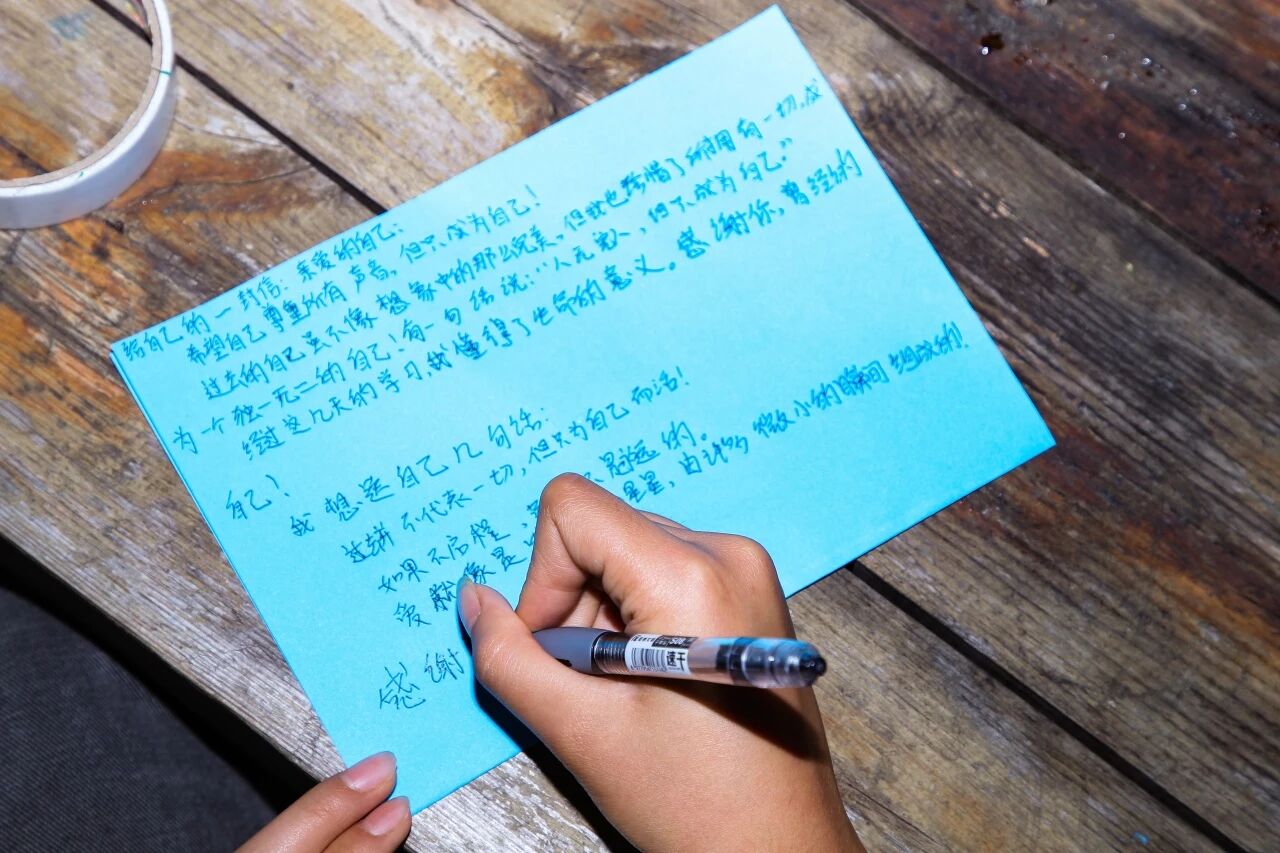 给自己的一封信：亲爱的自己：
希望自己尊重所有声音，但只成为自己！
过去的自己虽不像想象中的那么完美。但我也珍惜了拥有一切，成
为一个独一无二的自己！有一句话说：“人无完人，但下成为自己。”
经过这几天的学习，我懂得了生命的意义。感谢你，曾经的
自己！
我想送自己几句话：
过讲不代表一切，但只为自己而活！
如果不启程，是遥远的。
爱就像是星星，由许多微小的瞬间组成的！
感谢
速干